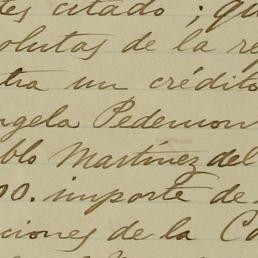 tes citado; qu
olutas de la re
tra un crédito
ngela Pedemon
blo Martínez del
00. importe de
ciones de la Co